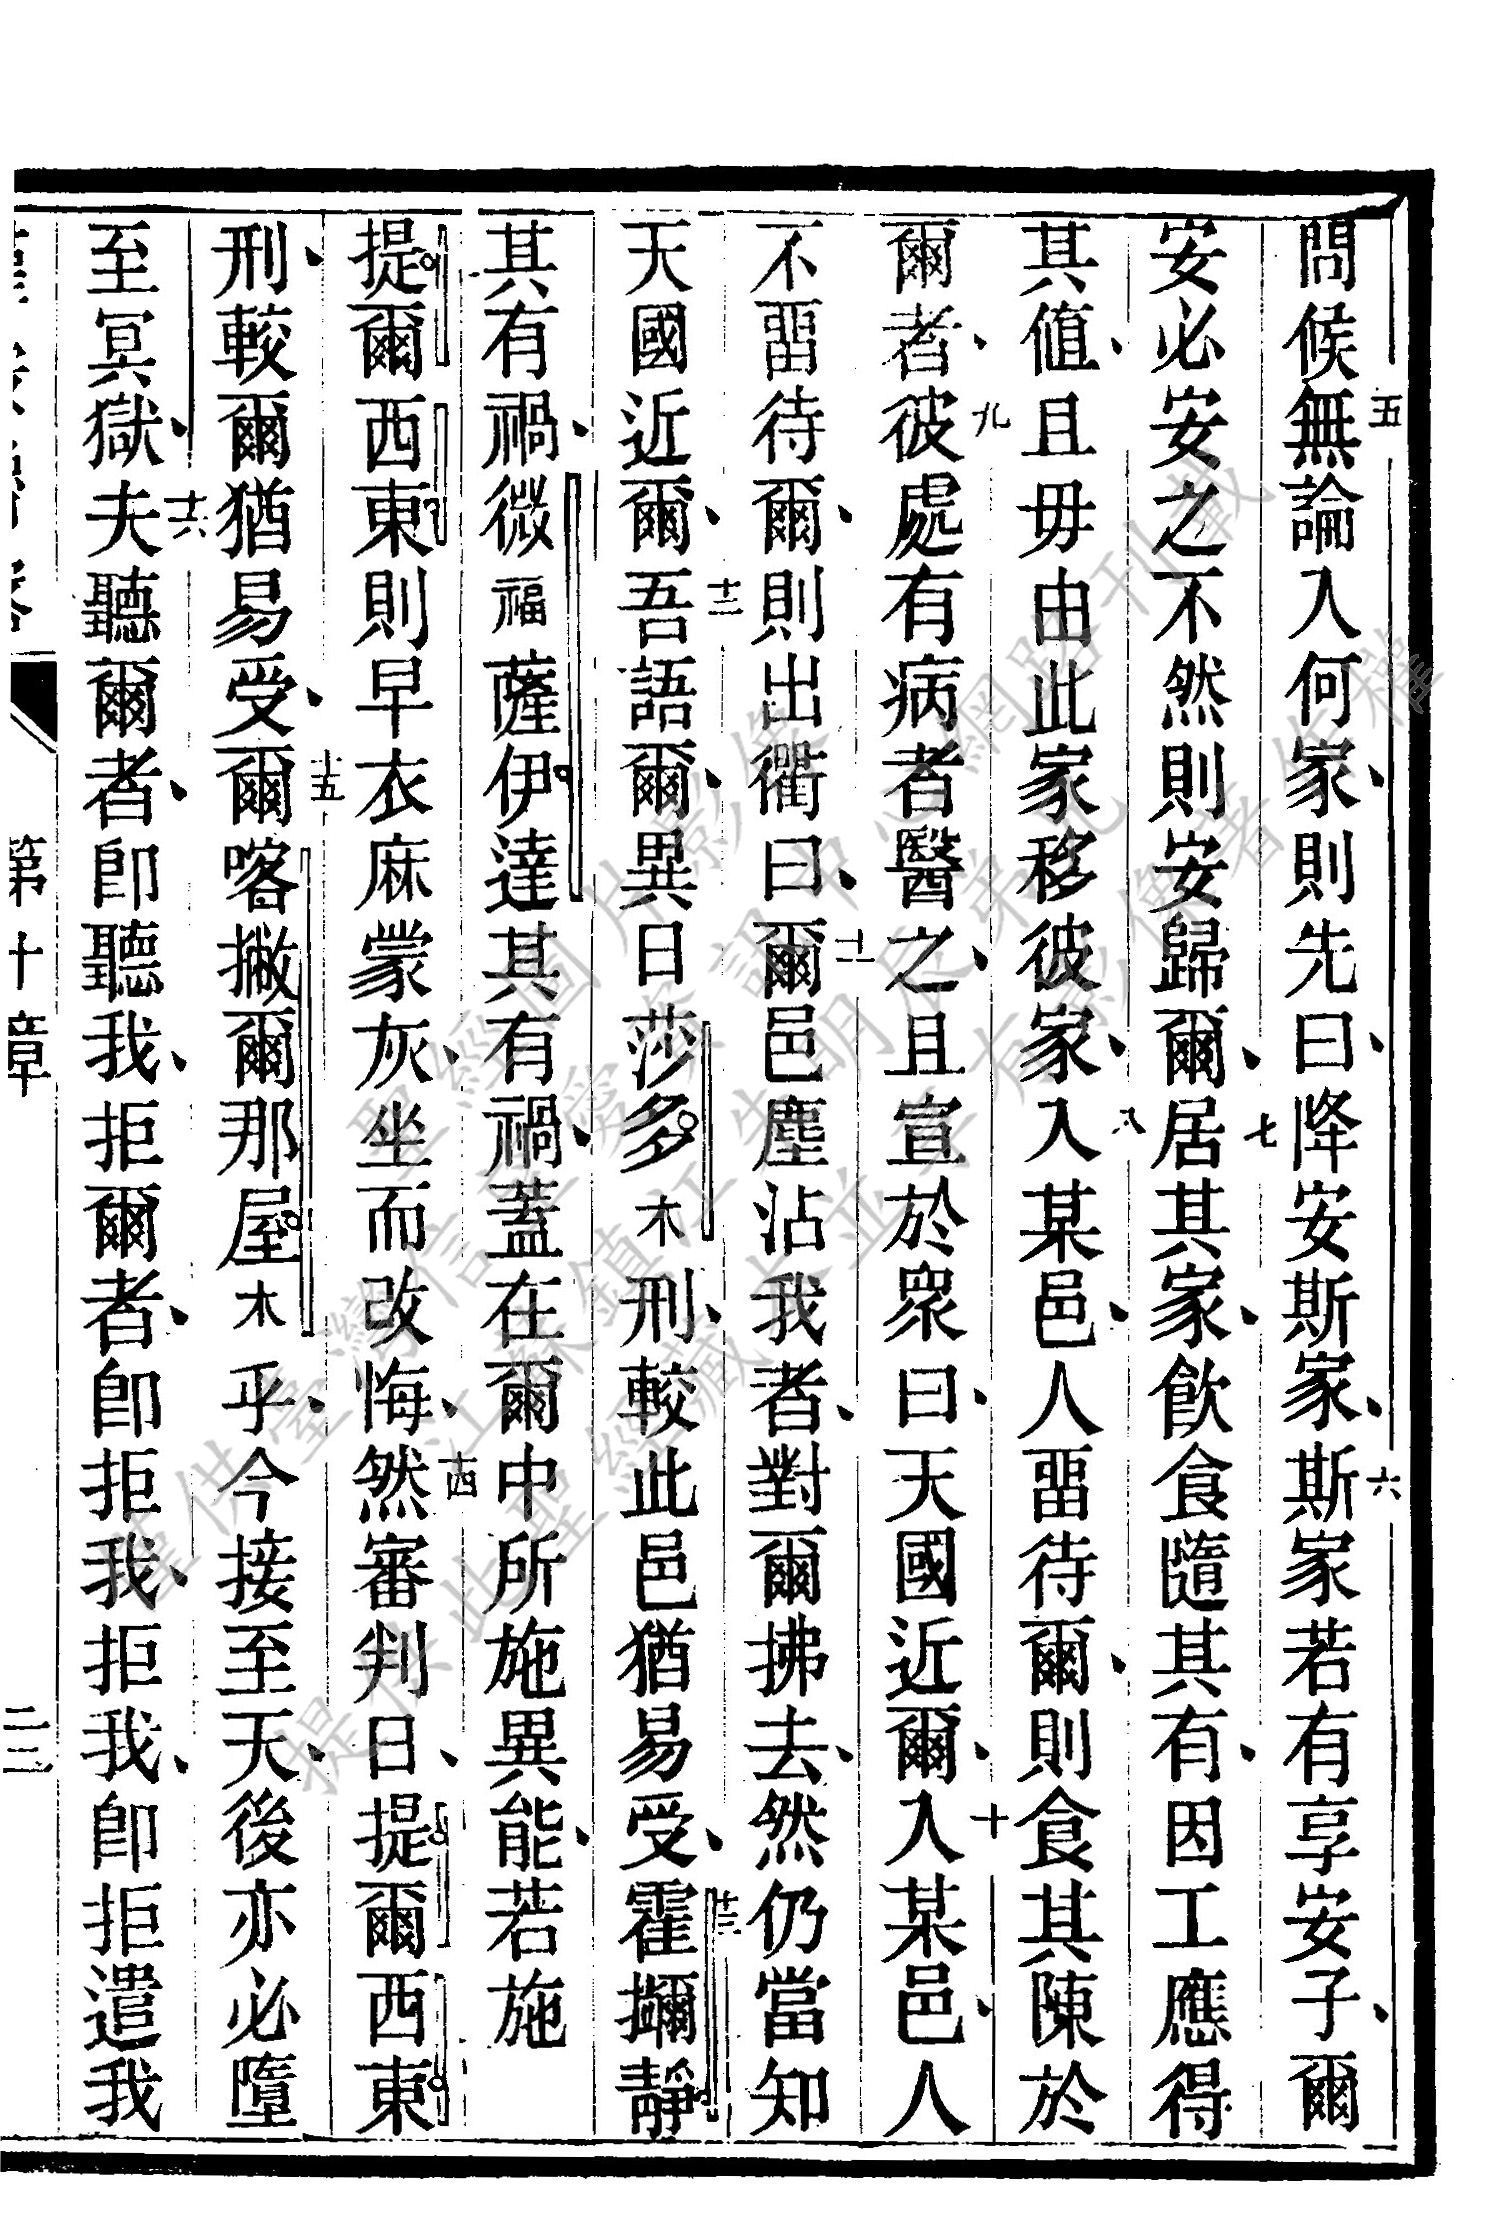 問候五無論入何家、則先曰、降安斯家、六斯家若有享安子、爾
安必安之不然則安歸爾、七居其家、飲食隨其有、因工應得
其值、且毋由此家移彼家、八入某邑、人畱待爾、則食其陳於
爾者、九彼處有病者醫之、且宣於眾曰、天國近爾、十入某邑、人
不畱待爾、則出衢曰、十一爾邑塵沾我者、對爾拂去、然仍當知
天國近爾、十二吾語爾、異日莎多木刑、較此邑猶易受、十三霍擟靜
其有禍、微福薩伊達其有禍、蓋在爾中所施異能、若施
提爾西東則早衣麻蒙灰、坐而改悔、十四然審判日、提爾西東
刑、較爾猶易受、十五爾喀撇爾那屋木乎、今接至天、後亦必墮
至冥獄、十六夫聽爾者、卽聽我、拒爾者、卽拒我、拒我、卽拒遣我
第十章
二二